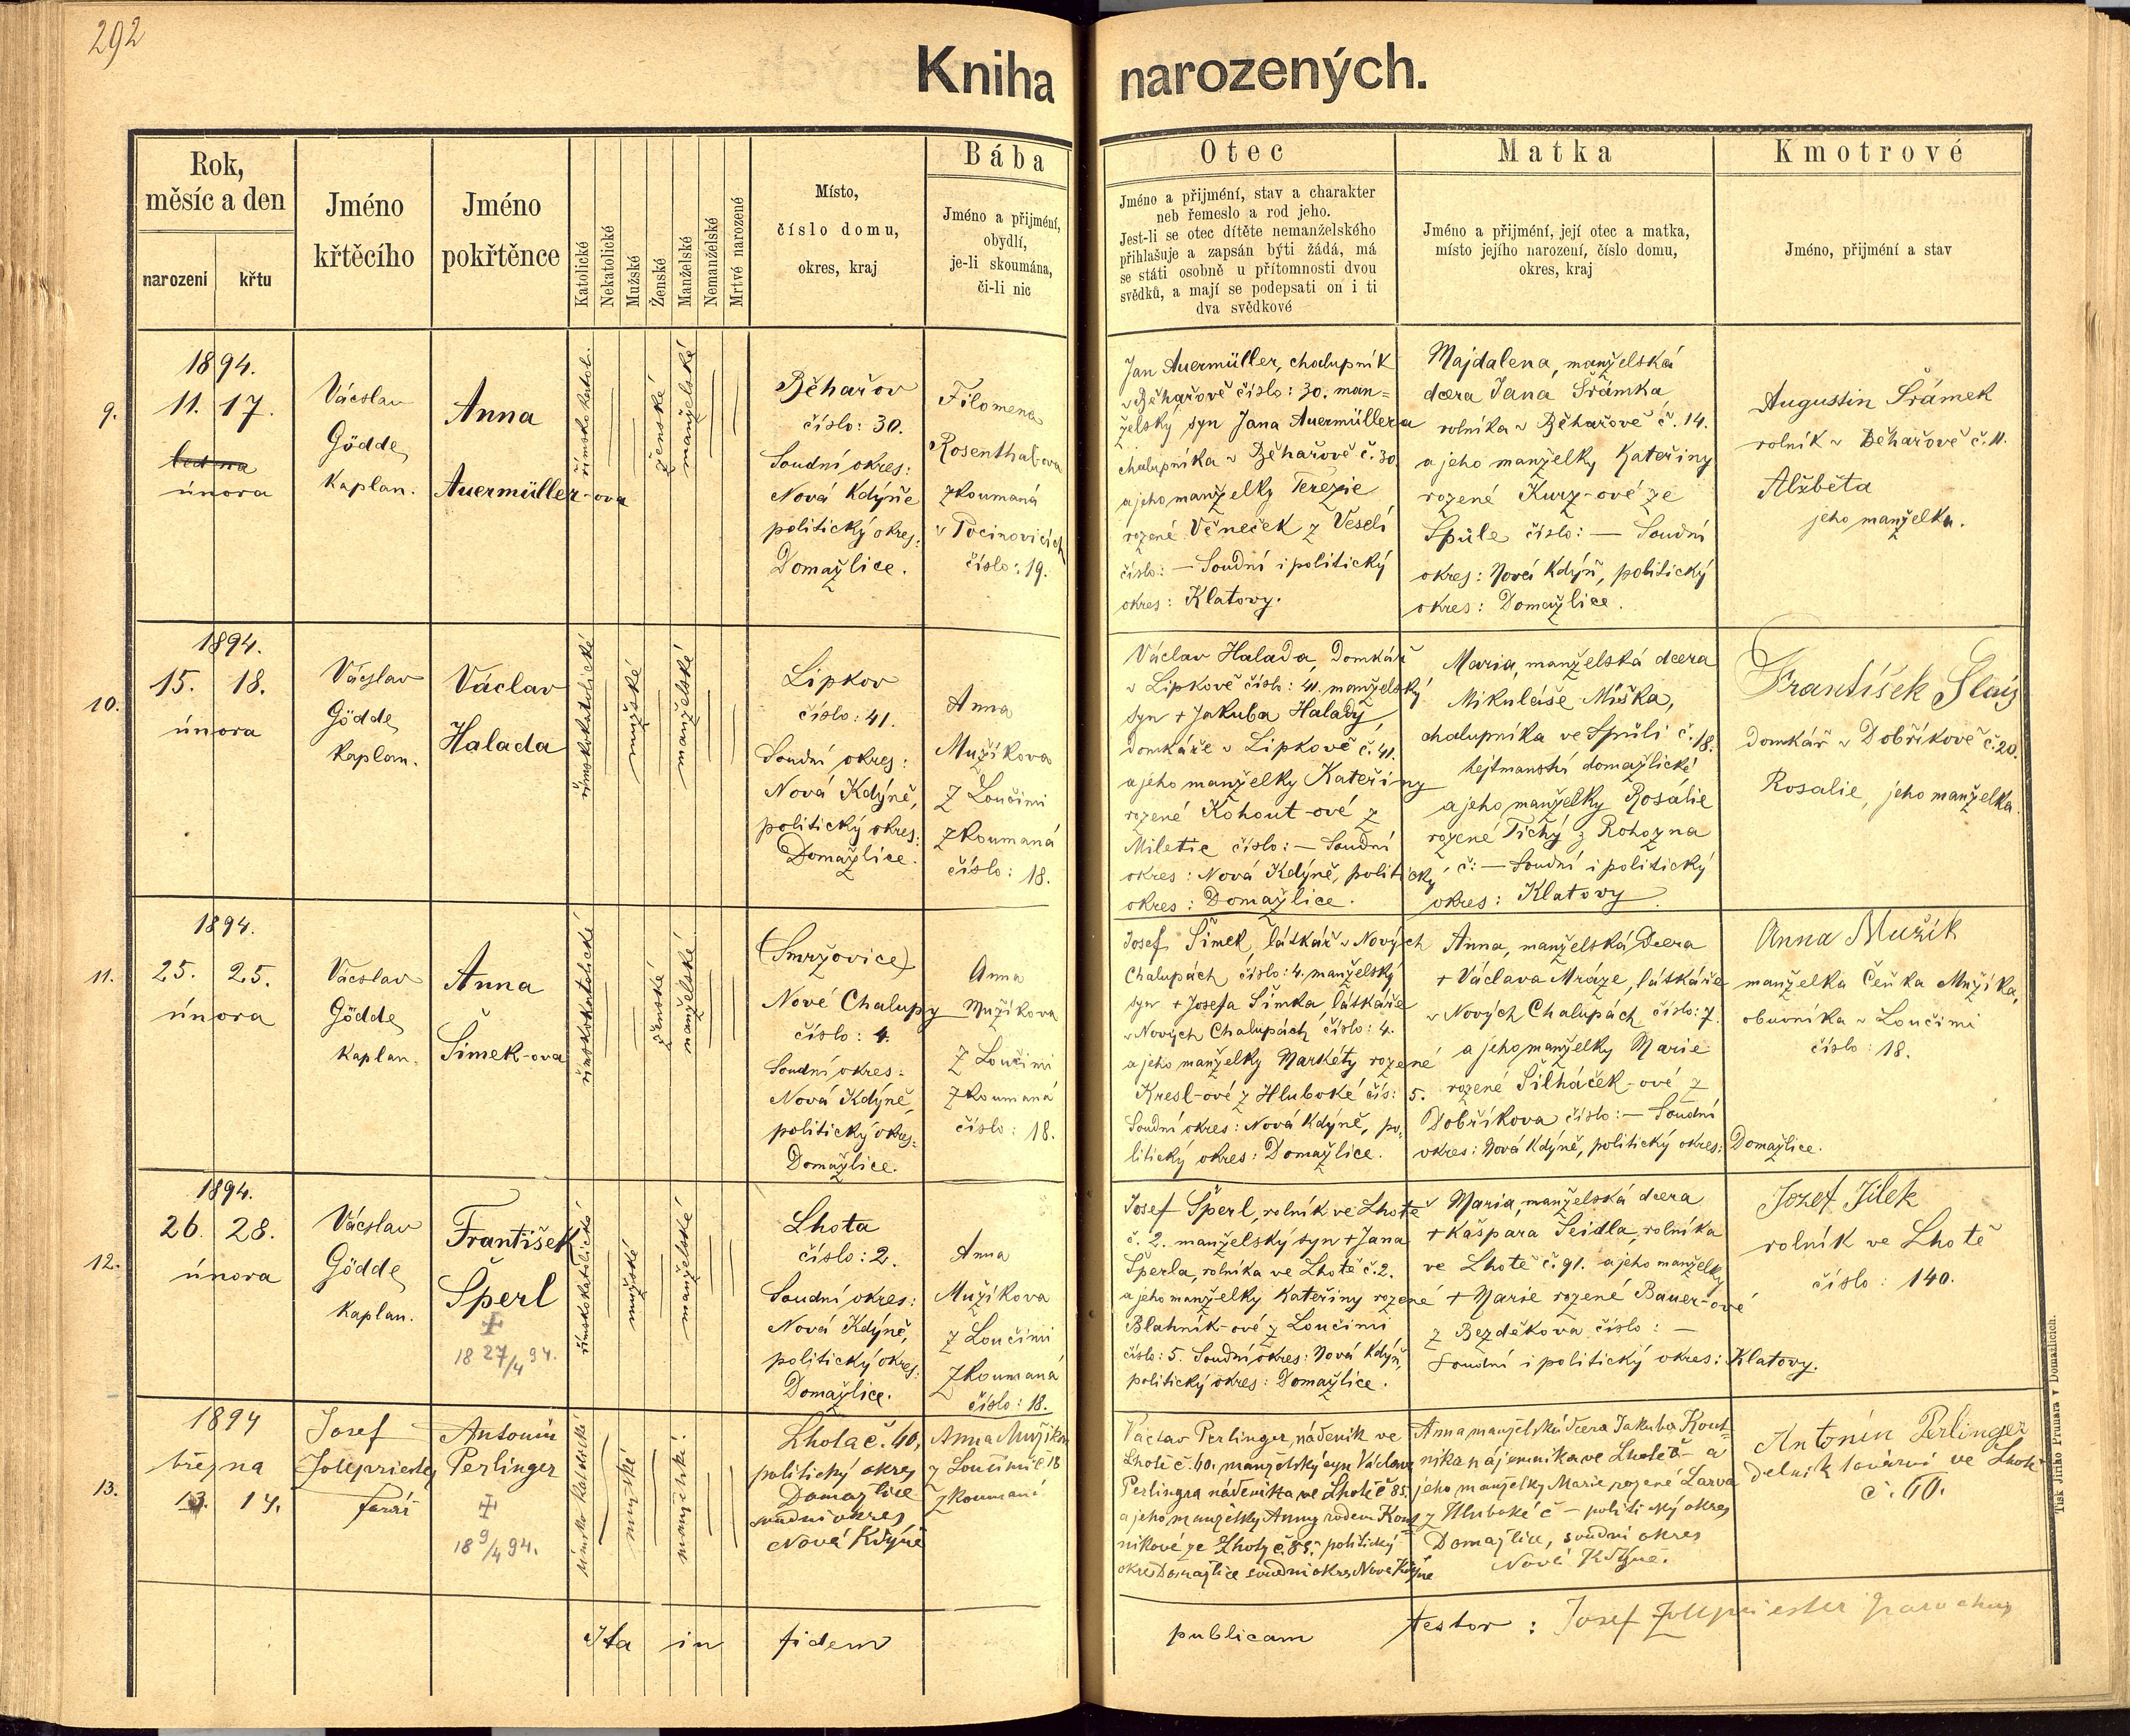 292
Kniha narozených.
Rok,
měsíc a den
narození
křtu
Jméno
křtěcího
Jméno
pokřtěnce
Katolické
Nekatolické
Mužské
Ženské
Manželské
Nemanželské
Mrtvě narozené
Místo,
číslo domu,
okres, kraj
Bába
Jméno a přijmění,
obydlí,
je-li skoumána,
či-li nic
Otec
Jméno a přijmění, stav a charakter
neb řemeslo a rod jeho.
Jest-li se otec dítěte nemanželského
přihlašuje a zapsán býti žádá, má
se státi osobně u přítomnosti dvou
svědků, a mají se podepsati on i ti
dva svědkové
Matka
Jméno a přijmění, její otec a matka,
místo jejího narození, číslo domu,
okres, kraj
Kmotrové
Jméno, přijmění a stav
9.
1894.
11. 17.
ledna
února
Václav
Gödde,
Kaplan.
Anna
Auermüller-ova
římskokatol.
ženské
manželské
Běhařov
číslo: 30.
Soudní okres:
Nová Kdýně
politický okres:
Domažlice.
Filomena
Rosenthal-ova
zkoumaná
v Pocinovicích
číslo: 19.
Jan Auermüller, chalupník
v Běhařově číslo: 30. man=
želský syn Jana Auermüllera
chalupníka v Běhařově č. 30.
a jeho manželky Terezie
rozené Věneček z Veselí
číslo: — Soudní i politický
okres: Klatovy.
Majdalena, manželská
dcera Jana Šrámka,
rolníka v Běhařově č. 14.
a jeho manželky Kateřiny
rozené Kurz-ové ze
Spůle číslo: — Soudní
okres: Nová Kdýň, politický
okres: Domažlice.
Augustin Šrámek
rolník v Běhařově č. 11.
Alžběta
jeho manželka.
10.
1894.
15. 18.
února
Václav
Gödde,
Kaplan.
Václav
Halada
římskokatolické
mužské
manželské
Lipkov
číslo: 41.
Soudní okres:
Nová Kdýně,
politický okres:
Domažlice.
Anna
Mužíkova
z Loučimi
zkoumaná
číslo: 18.
Václav Halada, Domkář
v Lipkově číslo: 41. manželský
syn + Jakuba Halady,
domkáře v Lipkově č. 41.
a jeho manželky Kateřiny
rozené Kohout-ové z
Miletic číslo: — Soudní
okres: Nová Kdýně, politický
okres: Domažlice.
Maria, manželská dcera
Mikuláše Miška,
chalupníka ve Spůli č. 18.
hejtmanství domažlické
a jeho manželky Rosalie
rozené Tichý z Rohozna
č: — Soudní i politický
okres: Klatovy.
František Slaiz
domkář v Dobříkově č. 20.
Rosalie, jeho manželka.
11.
1894.
25. 25.
února
Václav
Gödde,
Kaplan.
Anna
Šimek-ova
římskokatolické
ženské
manželské
(Smržovice)
Nové Chalupy
číslo: 4.
Soudní okres:
Nová Kdýně,
politický okres:
Domažlice.
Anna
Mužíkova
z Loučimi
zkoumaná
číslo: 18.
Josef Šimek, látkář v Nových
Chalupách číslo: 4. manželský
syn + Josefa Šimka, látkáře
v Nových Chalupách číslo: 4.
a jeho manželky Markéty rozené
Kresl-ové z Hluboké čís: 5.
Soudní okres: Nová Kdýně, po-
litický okres: Domažlice.
Anna, manželská Dcera
+ Václava Mráze, látkáře
v Nových Chalupách číslo: 7.
a jeho manželky Marie
rozené Šilháček-ové z
Dobříkova číslo: — Soudní
okres: Nová Kdýně, politický okres: Domažlice.
Anna Mužik
manželka Čeňka Mužíka,
obuvníka v Loučimi
číslo: 18.
12.
1894.
26. 28.
února
Václav
Gödde,
Kaplan.
František
Šperl
+
18 27/4 94.
římskokatolické
mužské
manželské
Lhota
číslo: 2.
Soudní okres:
Nová Kdýně,
politický okres:
Domažlice.
Anna
Mužíkova
z Loučimi
zkoumaná
číslo: 18.
Josef Šperl, rolník ve Lhotě
č. 2. manželský syn + Jana
Šperla, rolníka ve Lhotě č. 2.
a jeho manželky Kateřiny rozené
Blahník-ové z Loučimi
číslo: 5. Soudní okres: Nová Kdýň,
politický okres: Domažlice.
Maria, manželská dcera
+ Kašpara Seidla, rolníka
ve Lhotě č. 91. a jeho manželky
+ Marie rozené Bauer-ové
z Bezděkova číslo: —
Soudní i politický okres: Klatovy.
Jozef Jílek
rolník ve Lhotě
číslo: 140.
13.
1894
března
13. 14.
Josef
Zollpriester
farář
Antonín
Perlinger
+
18 9/4 94.
římsko katolické
mužské
manželské
Lhota č. 40,
politický okres
Domažlice
soudní okres
Nová Kdýně
Anna Mužíkova
z Loučimě č 18
zkoumaná
Václav Perlinger, nádeník ve
Lhotě č. 40. manželský syn Václava
Perlingra nádeníka ve Lhotě č 85.
a jeho manželky Anny rodem Kout-
níkové ze Lhoty č. 85. politický
okres Domažlice soudní okres Nová Kdýně
Anna manželská dcera Jakuba Kout-
níka nájemníka ve Lhotě č — a
jeho manželky Marie rozené Larva
z Hluboké č — politický okres
Domažlice, soudní okres
Nová Kdyně.
Antonín Perlinger
delník továrni ve Lhotě
č. 40.
Ita in fidem publicam testor: Josef Zollpriester parochus
Tisk Jiřího Prunara v Domažlicích.